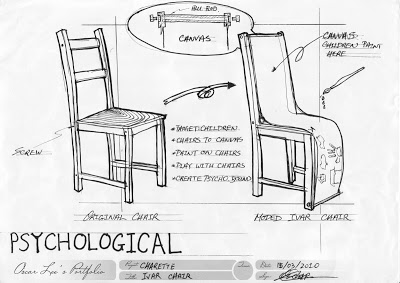 ALL ROD
CANVAS
CANVAS
CHILDREN PAINT
HERE
SCREW
* TARGET CHILDREN
* CHAIRS TO CANVAS
* PAINT ON CHAIRS
* PLAY WITH CHAIRS
* CREATE PSYCHO. BOUND
ORIGINAL CHAIR
MODED IVAR CHAIR
PSYCHOLOGICAL
Oscar Lee's Portfolio
Project CHARETTE
Title IVAR CHAIR
Date 18/03/2010